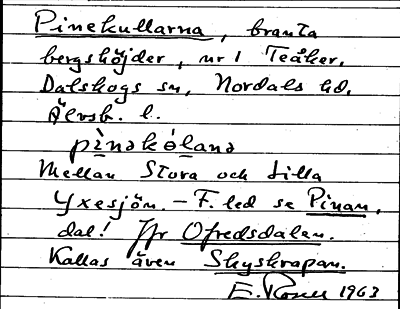 Pinekullarna, branta
bergshöjder, nr 1 Teåker,
Dalskogs sn, Nordals hd,
Älvsb. l.
pìnəkóland
Mellan Stora och Lilla
Yxesjön. – F. led se Pinan,
dal! Jfr Ofredsdalen.
Kallas även Skyskrapan.
E. Rosell 1963